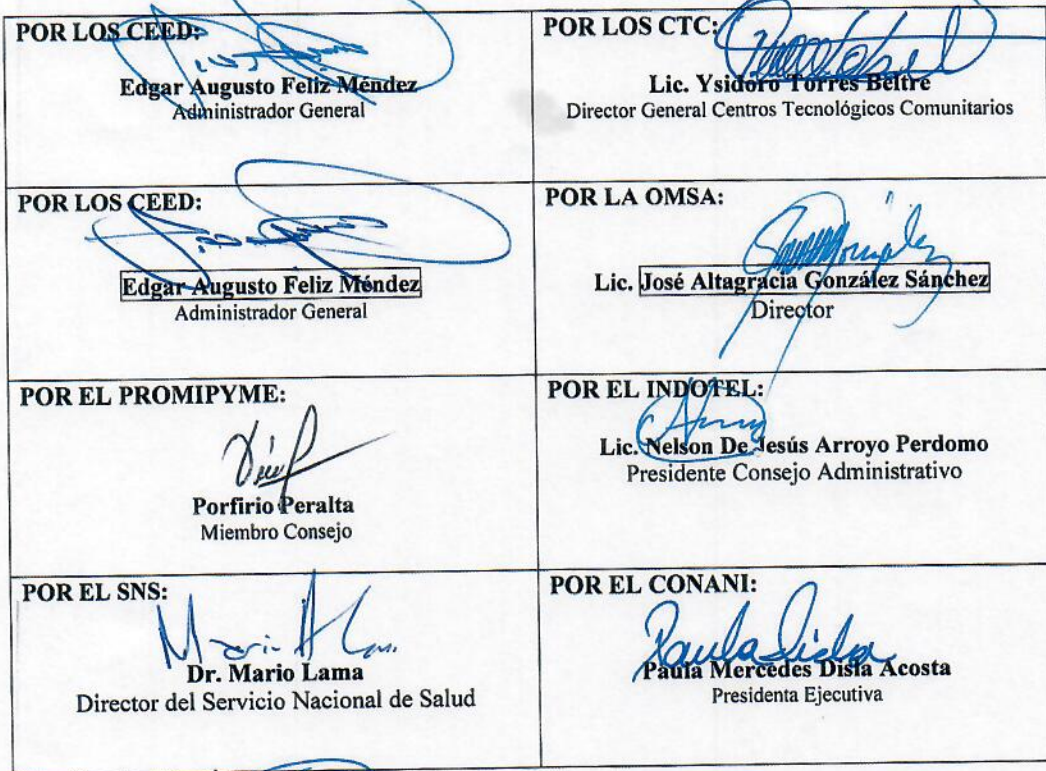 POR LOS CEED:
Edgar Augusto Feliz Méndez
Administrador General
POR LOS CTC:
Lic. Ysidoro Torres Beltre
Director General Centros Tecnológicos Comunitarios
POR LOS CEED:
Edgar Augusto Feliz Méndez
Administrador General
POR LA OMSA:
Lic. José Altagracia González Sánchez
Director
POR EL PROMIPYME:
Porfirio Peralta
Miembro Consejo
POR EL INDOTEL:
Lic. Nelson De Jesús Arroyo Perdomo
Presidente Consejo Administrativo
POR EL SNS:
Dr. Mario Lama
Director del Servicio Nacional de Salud
POR EL CONANI:
Paula Mercedes Disla Acosta
Presidenta Ejecutiva